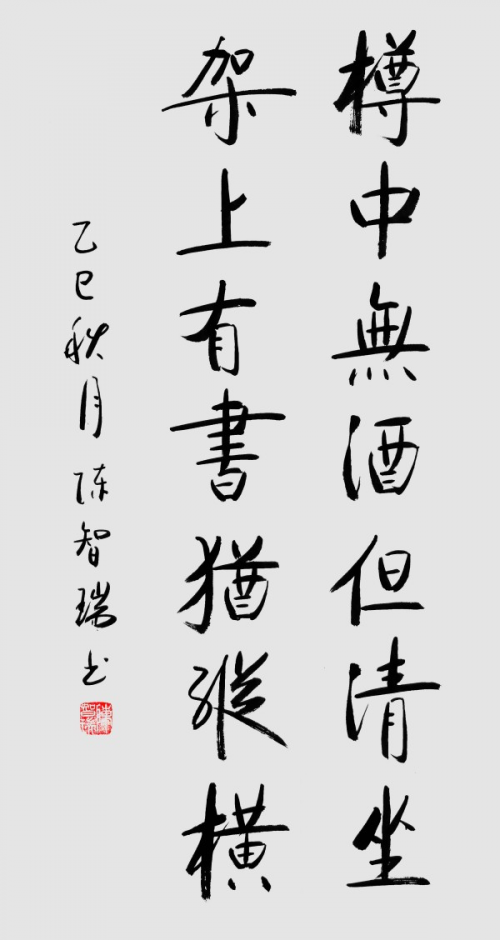 樽中無酒但清坐
架上有書猶縱橫
乙巳秋月 陈智瑞书